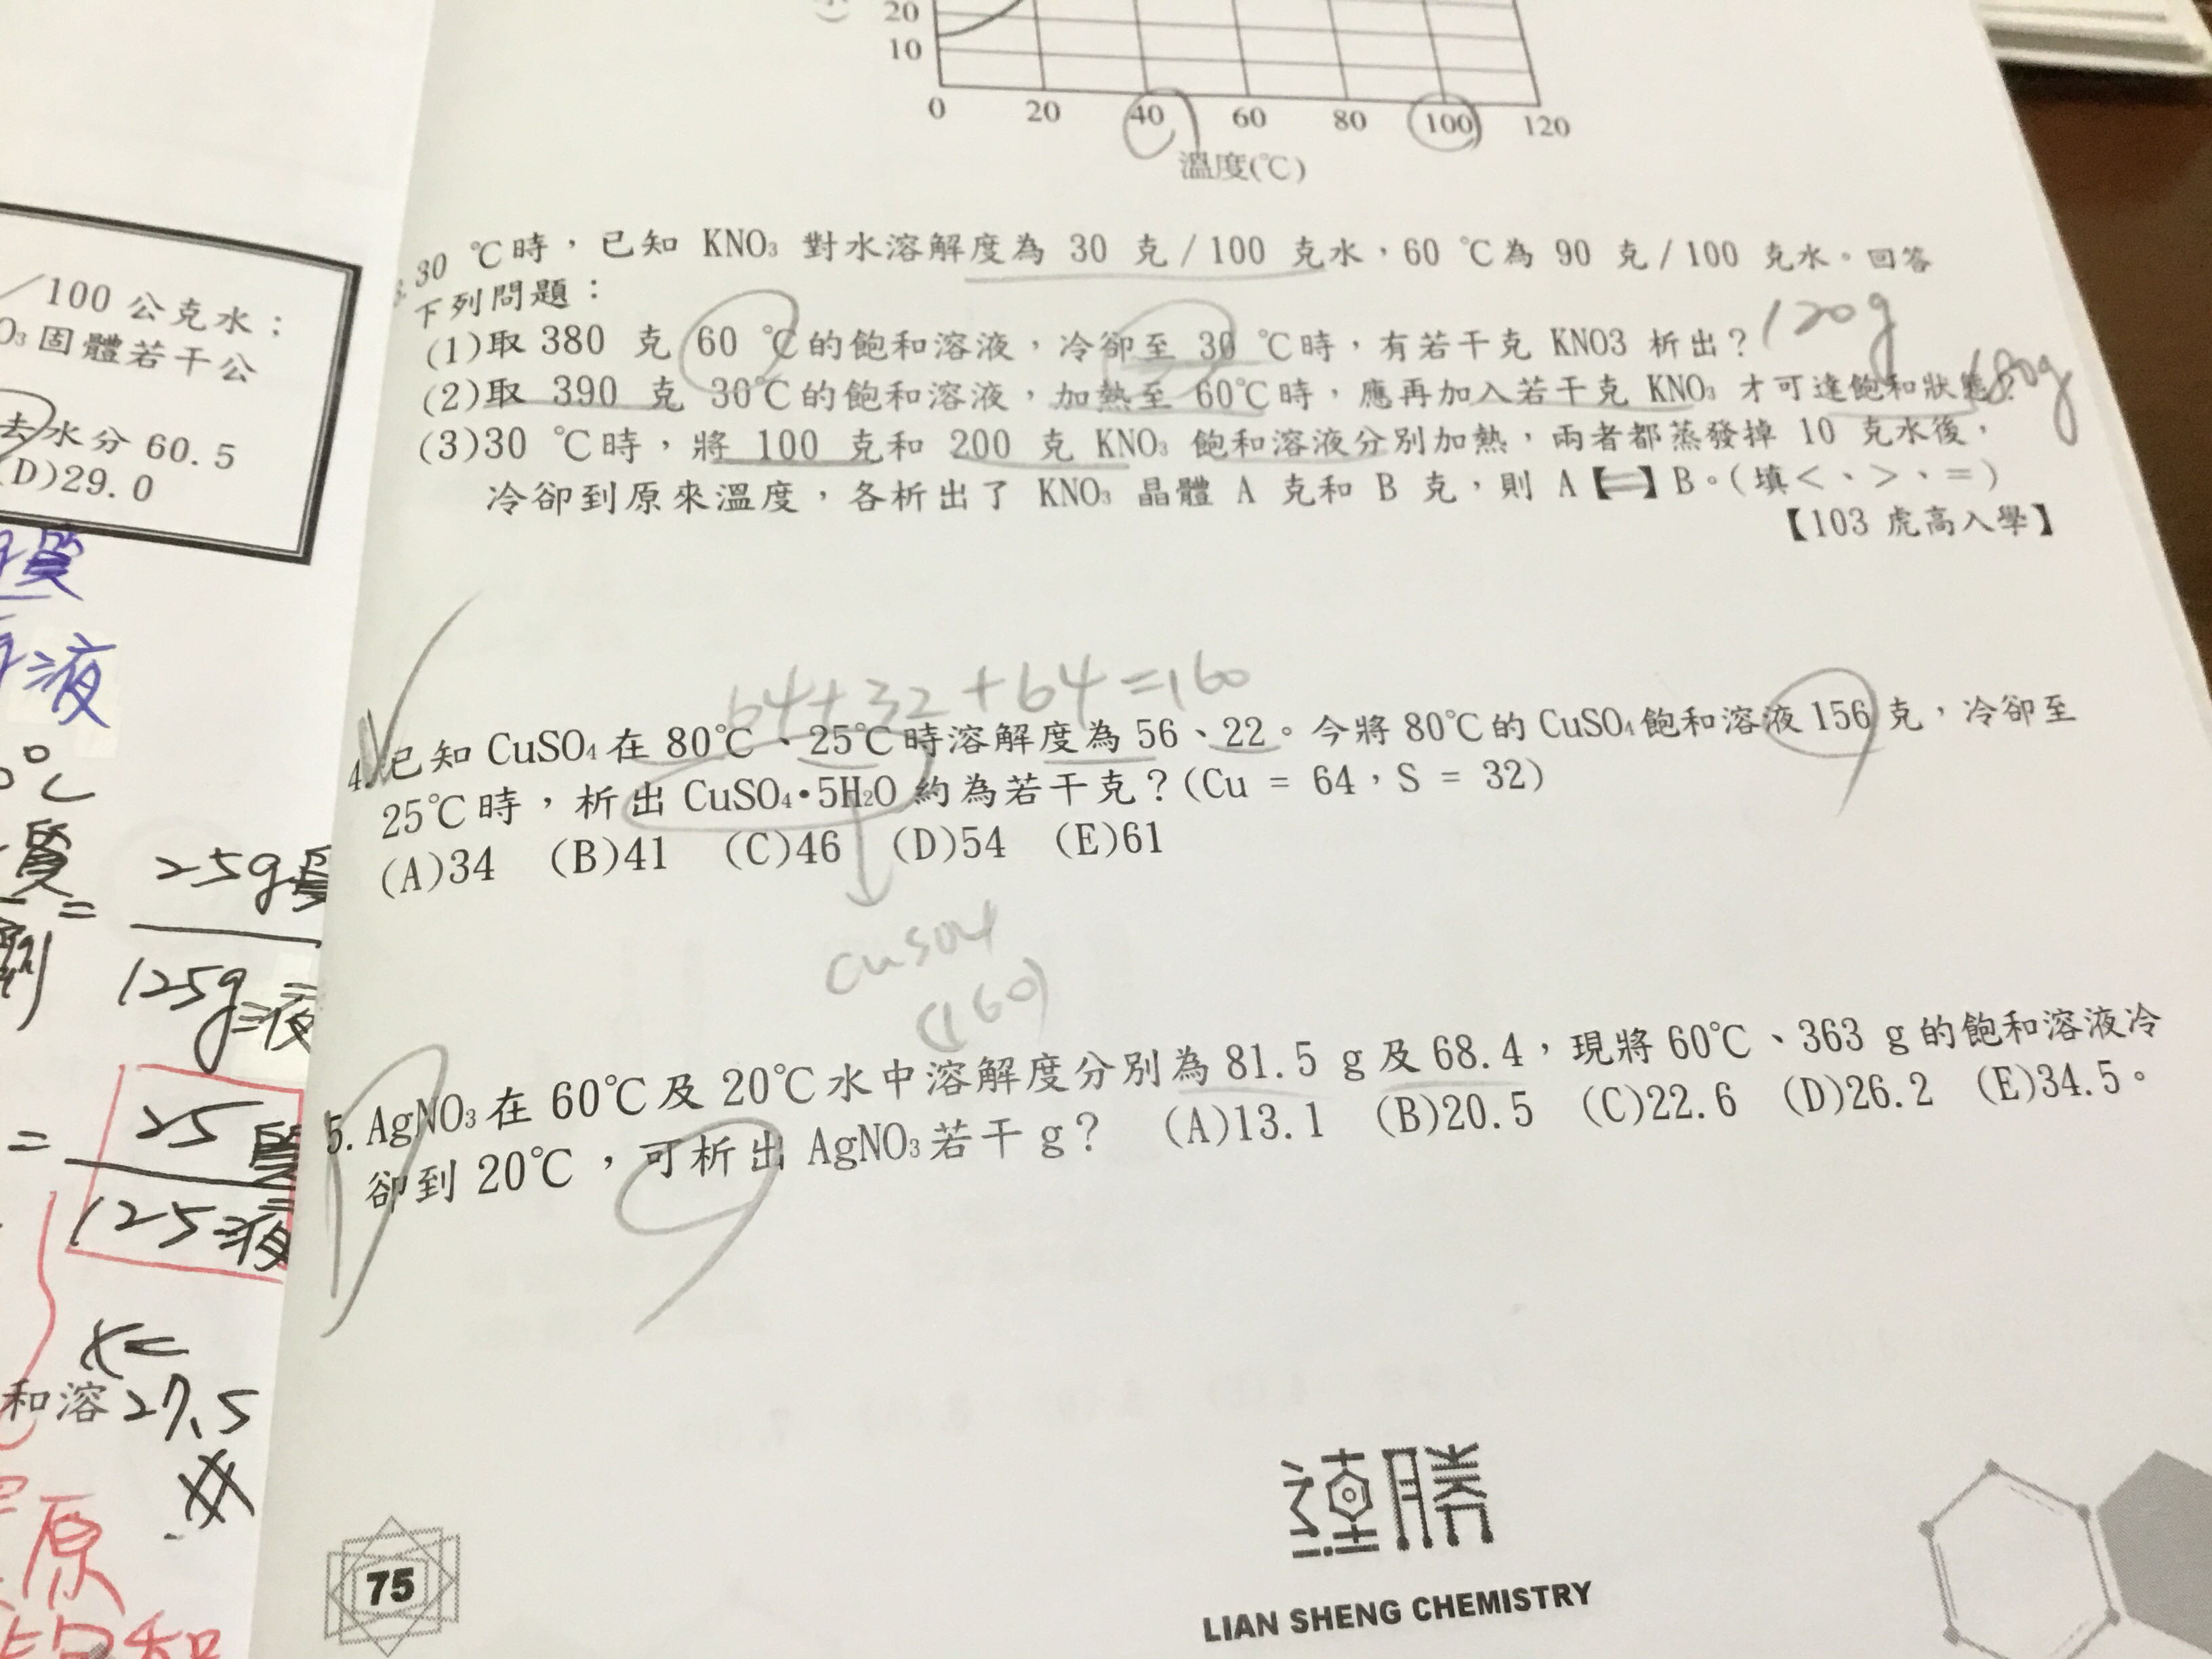 20
10
0 20 40 60 80 100 120
溫度(℃)
/100 公克水；
O₃固體若干公
去水分 60.5
(D)29.0
質
液
0℃
質 = 25g質
劑 125g液
= 25質
125液
x=
27.5
和溶
原
飽和
3. 30 ℃時，已知 KNO₃ 對水溶解度為 30 克/100 克水，60 ℃為 90 克/100 克水。回答
下列問題：
(1)取 380 克 60 ℃的飽和溶液，冷卻至 30 ℃時，有若干克 KNO3 析出？ 120g
(2)取 390 克 30℃的飽和溶液，加熱至 60℃時，應再加入若干克 KNO₃ 才可達飽和狀態？ 180g
(3)30 ℃時，將 100 克和 200 克 KNO₃ 飽和溶液分別加熱，兩者都蒸發掉 10 克水後，
冷卻到原來溫度，各析出了 KNO₃ 晶體 A 克和 B 克，則 A【=】B。(填＜、＞、＝)
【103 虎高入學】
64+32+64=160
4. 已知 CuSO₄ 在 80℃、25℃時溶解度為 56、22。今將 80℃的 CuSO₄ 飽和溶液 156 克，冷卻至
25℃時，析出 CuSO₄•5H₂O 約為若干克？(Cu = 64，S = 32)
(A)34 (B)41 (C)46 (D)54 (E)61
CuSO4
(160)
5. AgNO₃ 在 60℃及 20℃水中溶解度分別為 81.5 g 及 68.4，現將 60℃、363 g 的飽和溶液冷
卻到 20℃，可析出 AgNO₃ 若干 g？ (A)13.1 (B)20.5 (C)22.6 (D)26.2 (E)34.5。
75
蓮勝
LIAN SHENG CHEMISTRY